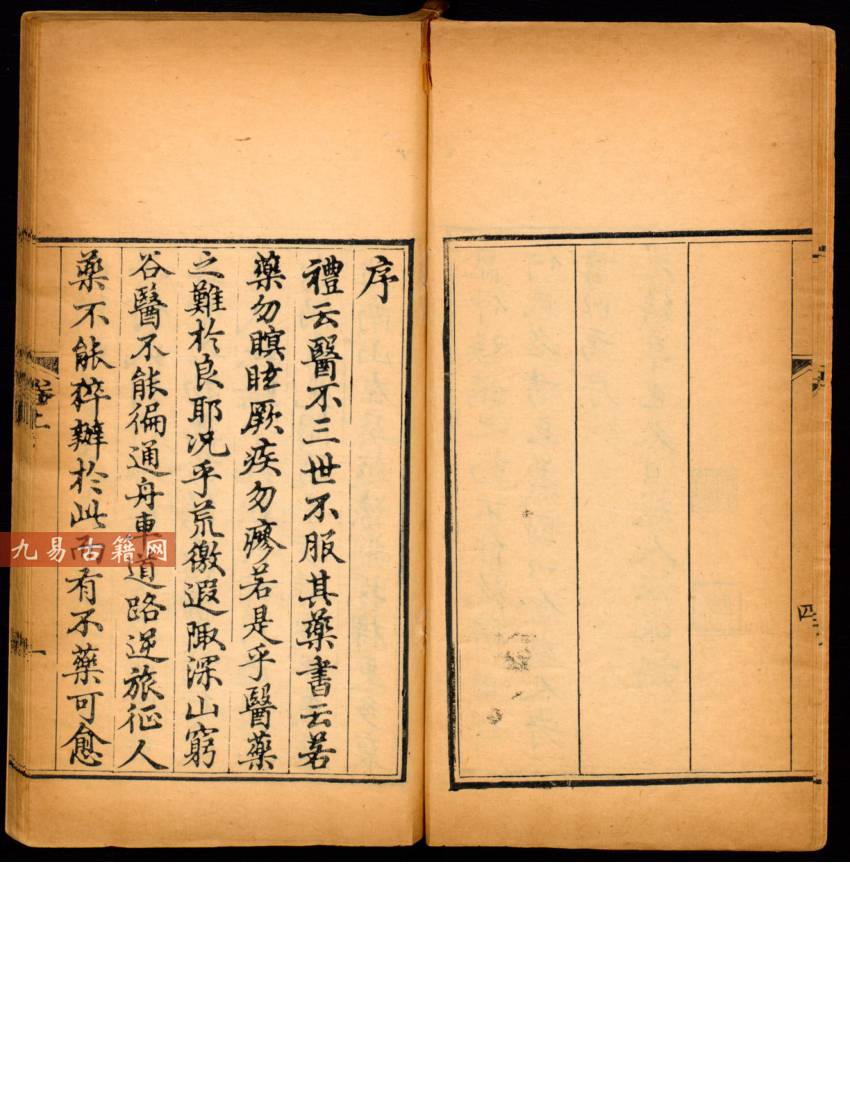 四
序
禮云醫不三世不服其藥書云若
藥勿瞑眩厥疾勿瘳若是乎醫藥
之難於良耶况乎荒徼遐陬深山窮
谷醫不能徧通舟車道路逆旅征人
藥不能猝辦於此而有不藥可愈
卷上
一
九易古籍网